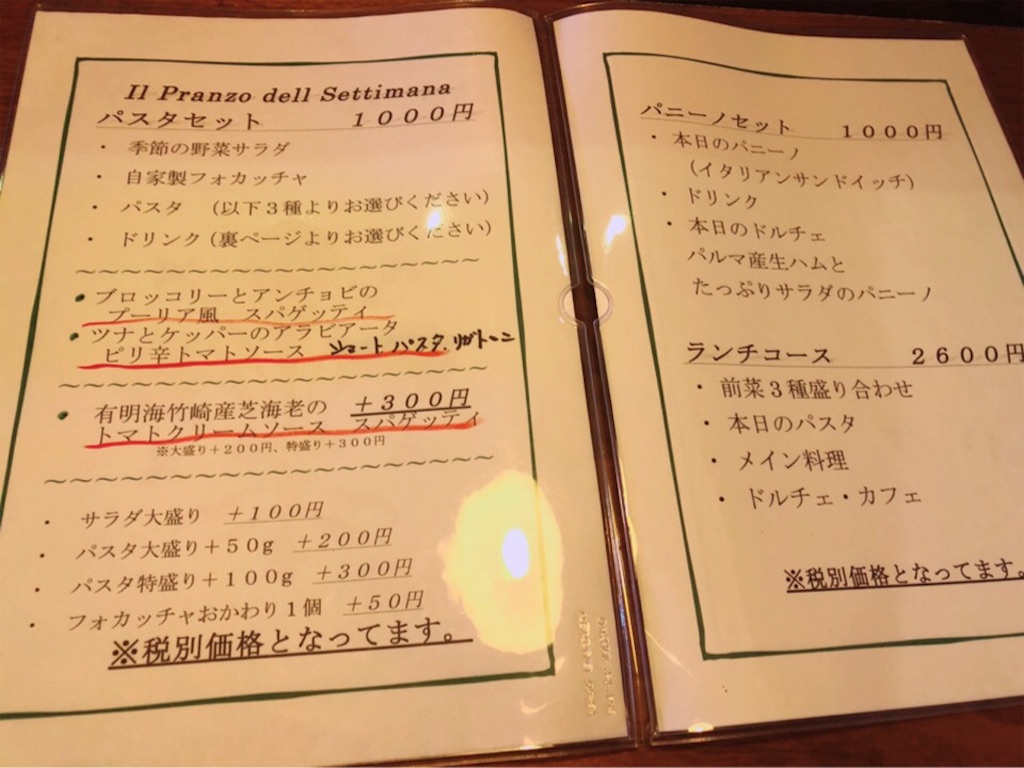 Il Pranzo dell Settimana
パスタセット　１０００円
・ 季節の野菜サラダ
・ 自家製フォカッチャ
・ パスタ （以下３種よりお選びください）
・ ドリンク（裏ページよりお選びください）
～～～～～～～～～～～～～～～～～～～～
● ブロッコリーとアンチョビの
プーリア風　スパゲッティ
● ツナとケッパーのアラビアータ
ピリ辛トマトソース　ショートパスタ リガトーニ
～～～～～～～～～～～～～～～～～～～～
● 有明海竹崎産芝海老の　＋３００円
トマトクリームソース　スパゲッティ
※大盛り＋２００円、特盛り＋３００円
～～～～～～～～～～～～～～～～～～～～
・ サラダ大盛り　＋１００円
・ パスタ大盛り＋５０g　＋２００円
・ パスタ特盛り＋１００g　＋３００円
・ フォカッチャおかわり１個　＋５０円
※税別価格となってます。
パニーノセット　１０００円
・ 本日のパニーノ
（イタリアンサンドイッチ）
・ ドリンク
・ 本日のドルチェ
パルマ産生ハムと
たっぷりサラダのパニーノ
ランチコース　２６００円
・ 前菜３種盛り合わせ
・ 本日のパスタ
・ メイン料理
・ ドルチェ・カフェ
※税別価格となってます。